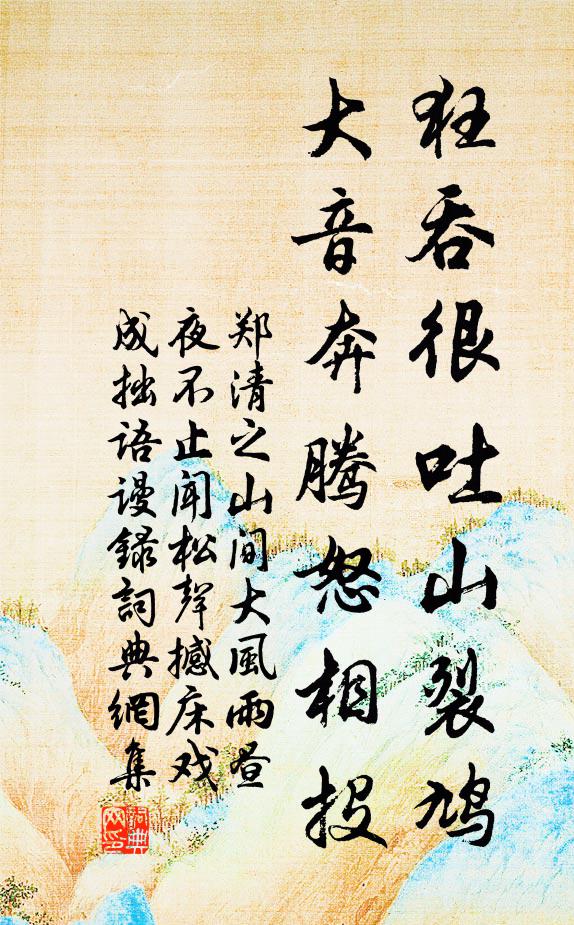 狂吞很吐山裂鸠
大音奔腾怒相投
郑清之山间大風雨昼
夜不止闻松聲撼床戏
成拙语谩錄詞典網集